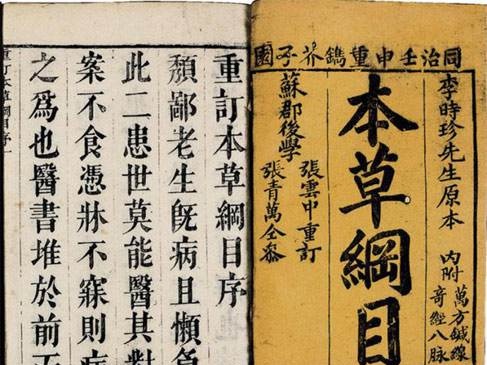 同治壬申重鐫芥子園
李時珍先生原本
內附
萬方鍼線
奇經八脉
本草綱目
蘇郡後學
張雲中重訂
張青萬仝參
重訂本草綱目序
頽鄙老生旣病且懶
此二患世莫能醫其對
案不食憑牀不寐則
之爲也醫書堆於前
重訂本草綱目序